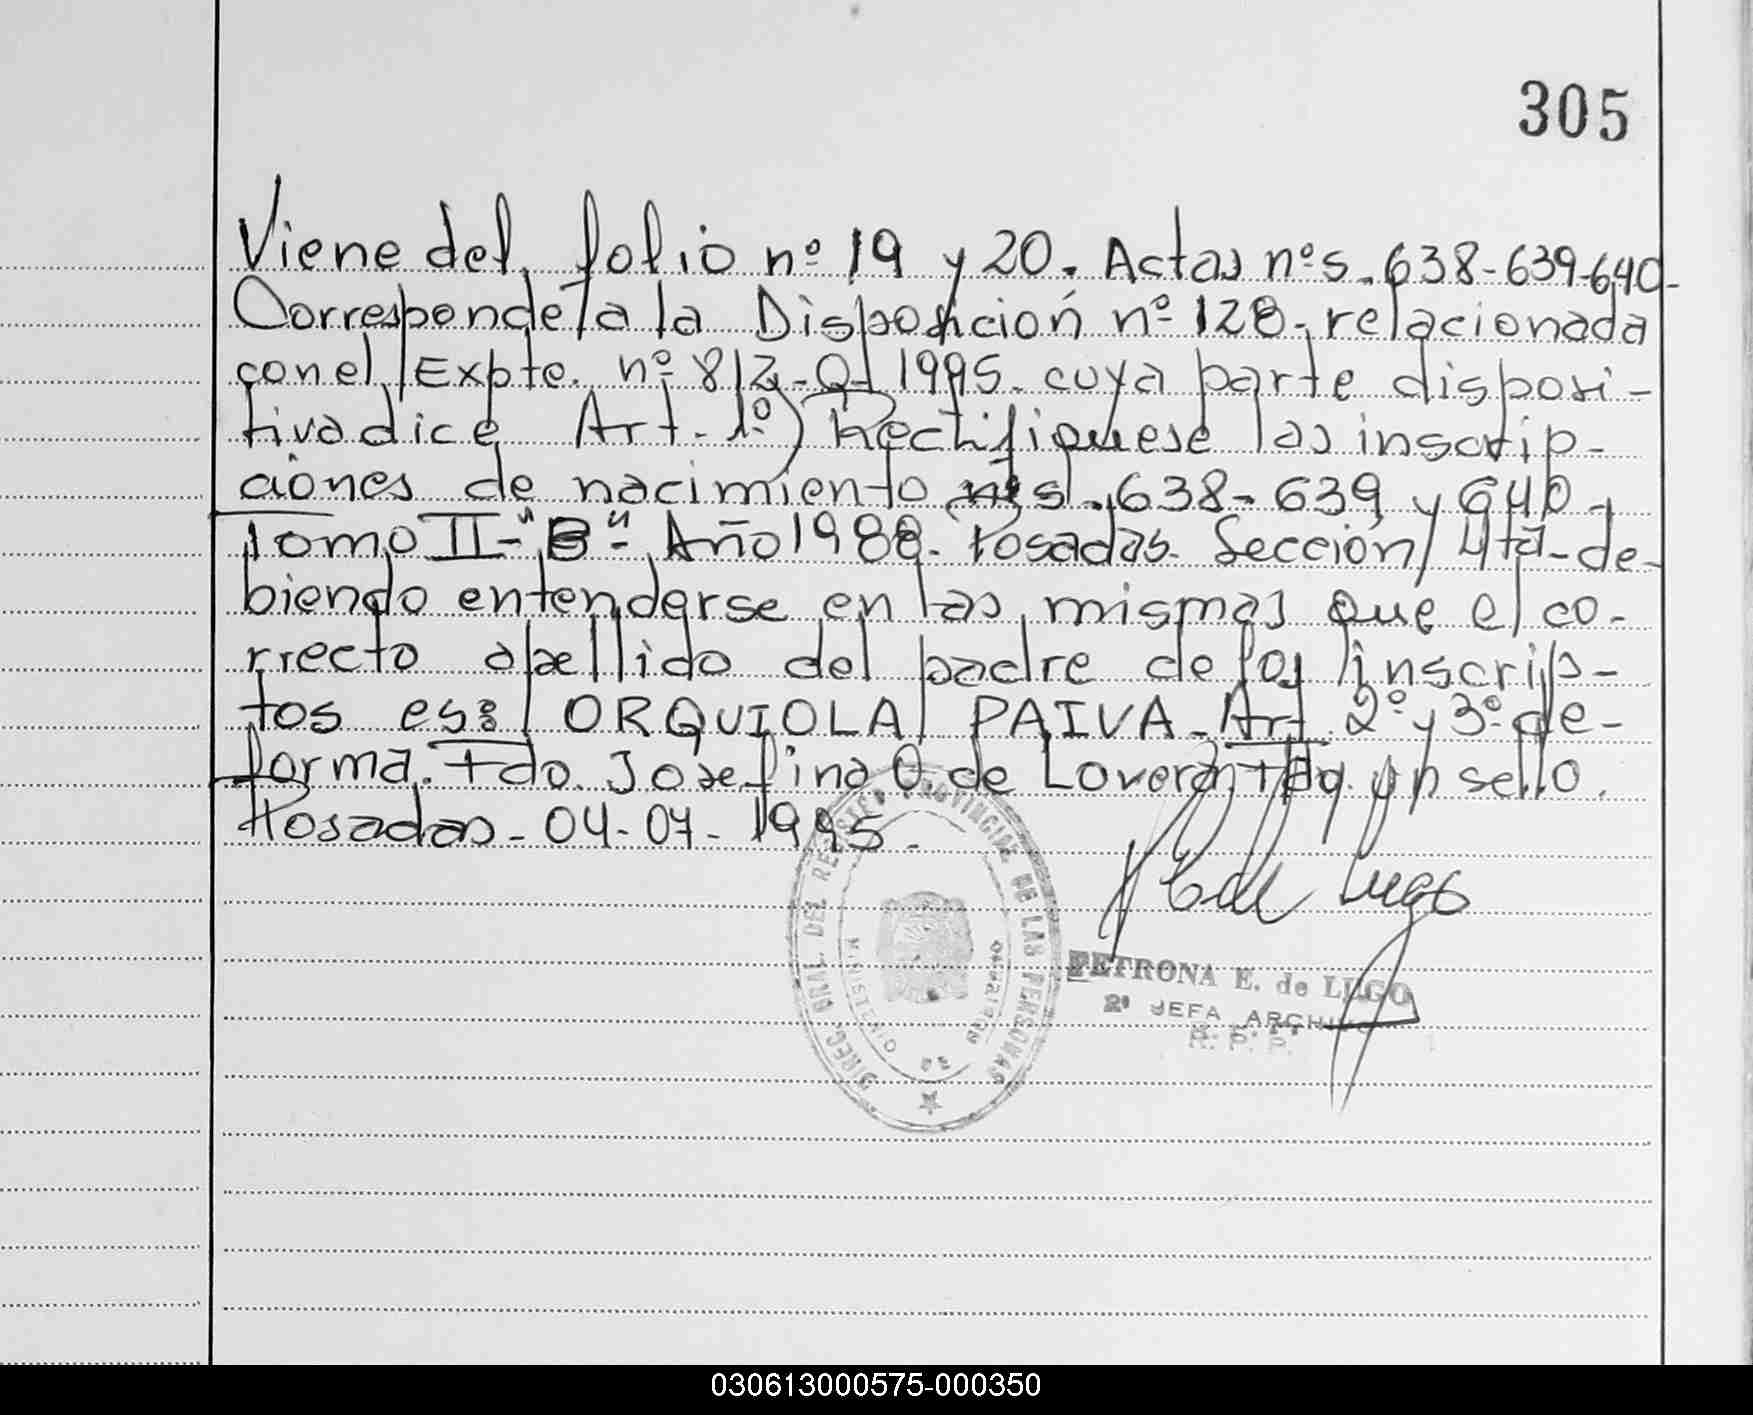 305
Viene del folio nº 19 y 20. Actas nºs. 638-639-640-
Corresponde a la Disposición nº 128- relacionada
con el Expte. nº 812-O- 1995- cuya parte disposi-
tiva dice Art. 1º) Rectifiquese las inscrip-
ciones de nacimiento nºs. 638- 639 y 640-
Tomo II-"B"- Año 1988. Posadas. Sección 4ta- de-
biendo entenderse en las mismas que el co-
rrecto apellido del padre de los inscrip-
tos es: ORQUIOLA PAIVA- Art 2º y 3º de-
forma. Fdo. Josefina O de Lovera Hay un sello.
Posadas- 04-07- 1995-
DIREC. GRAL. DEL REGISTRO PROVINCIAL DE LAS PERSONAS
MINISTERIO DE GOBIERNO
PETRONA E. de LUGO
2º JEFA ARCHIVO
R. P. P.
030613000575-000350